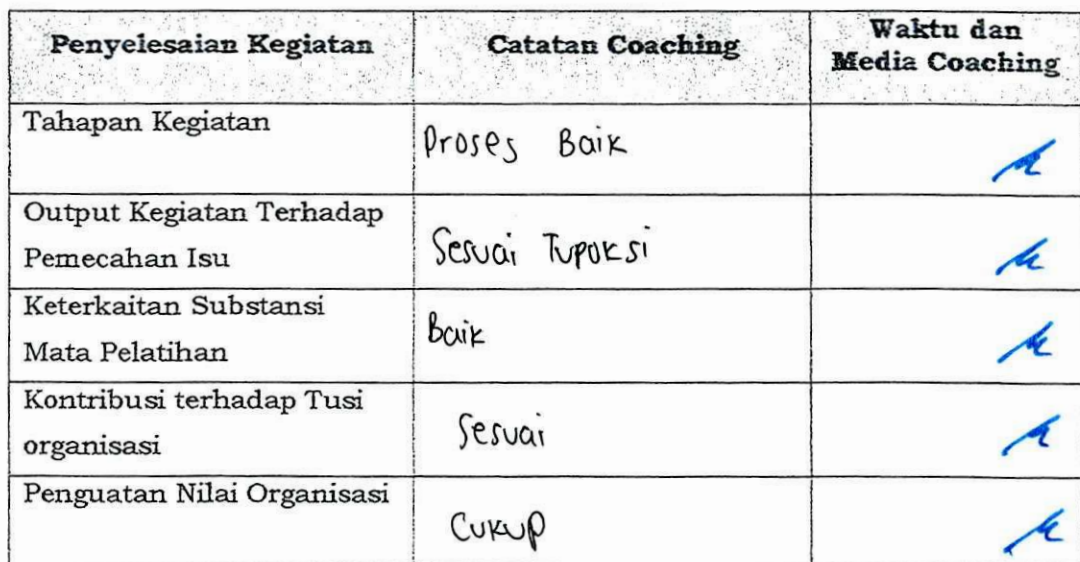 Penyelesaian Kegiatan
Catatan Coaching
Waktu dan
Media Coaching
Tahapan Kegiatan
Proses Baik
Output Kegiatan Terhadap
Pemecahan Isu
Sesuai Tupoksi
Keterkaitan Substansi
Mata Pelatihan
Baik
Kontribusi terhadap Tusi
organisasi
Sesuai
Penguatan Nilai Organisasi
Cukup